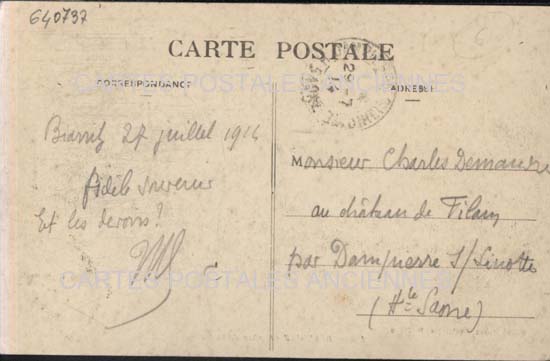 640737
CARTE POSTALE
CORRESPONDANCE
ADRESSE
29 - 7
14
CARTES POSTALES ANCIENNES
Biarritz 27 juillet 1914
fidèle souvenir
Et les devoirs?
Monsieur Charles Demandre
au château de Filain
par Dampierre s/Linotte
(Hte Saône)
CARTES POSTALES ANCIENNES